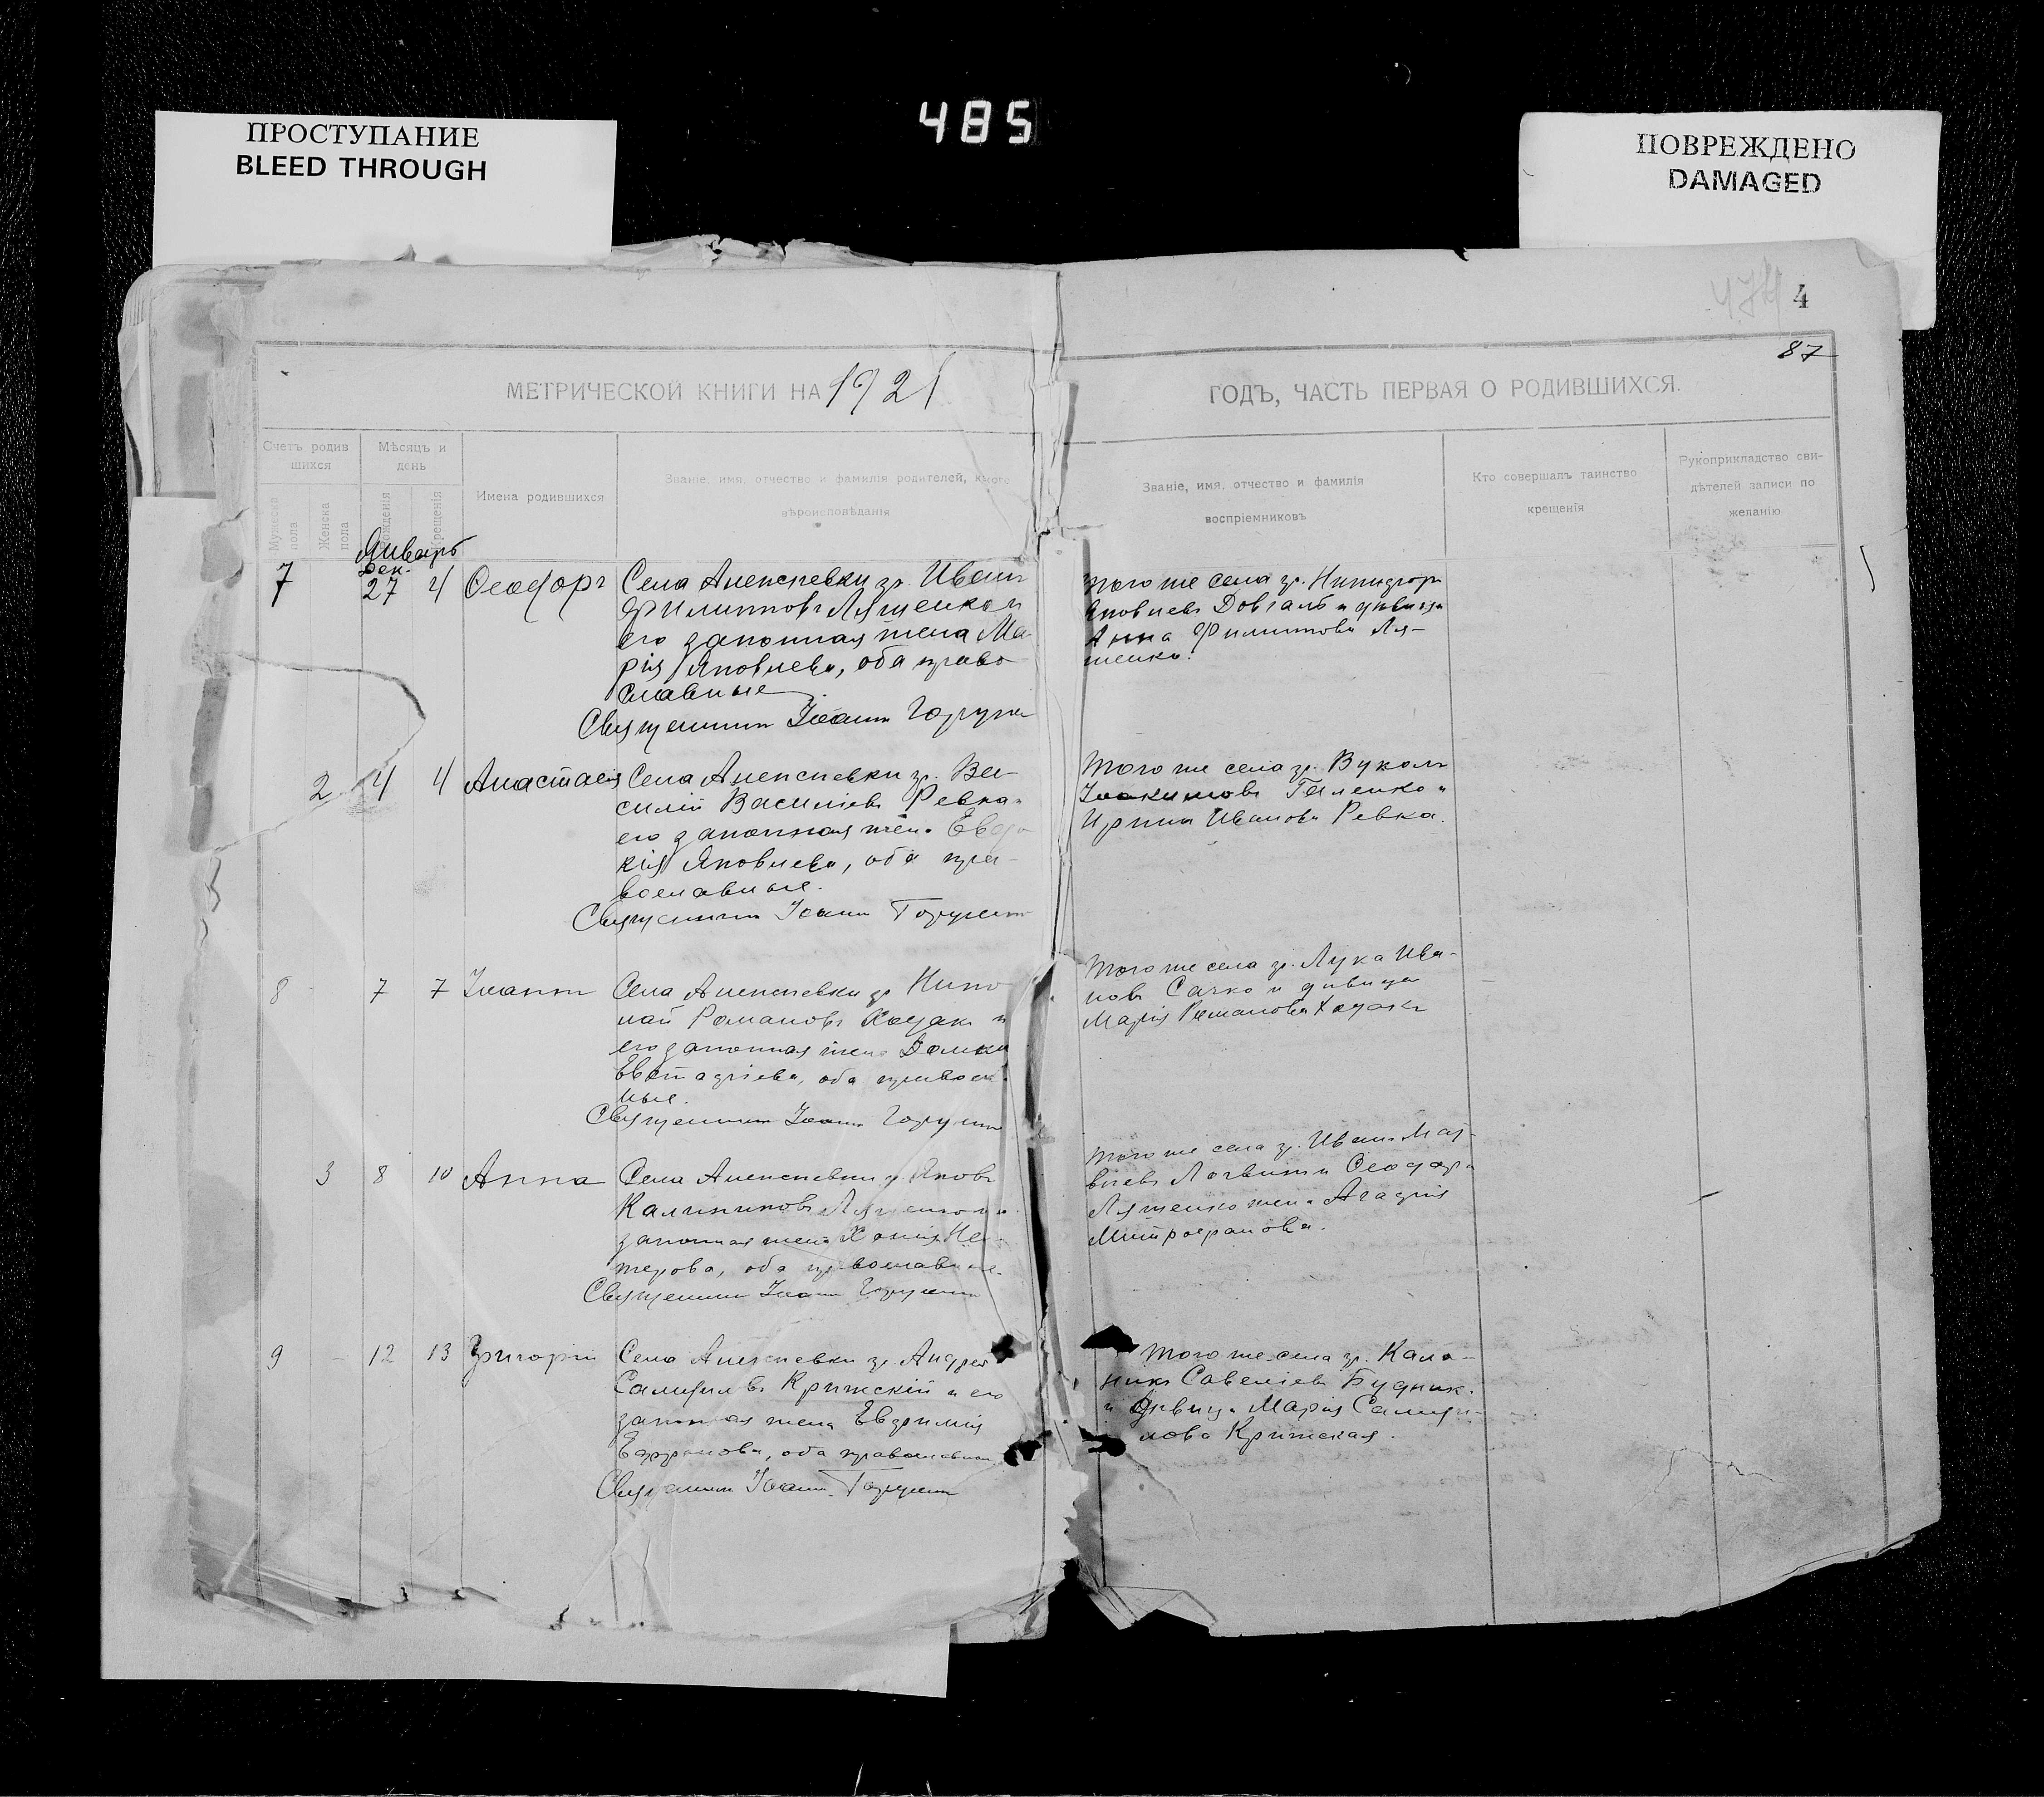 485
ПРОСТУПАНИЕ
BLEED THROUGH
ПОВРЕЖДЕНО
DAMAGED
474 4
87
МЕТРИЧЕСКОЙ КНИГИ НА 1921
ГОДЪ, ЧАСТЬ ПЕРВАЯ О РОДИВШИХСЯ.
Счетъ родив
шихся
Мѣсяцъ и
день
Мужеска
пола
Женска
пола
Рожденія
Крещенія
Имена родившихся
Званіе, имя, отчество и фамилія родителей, какого
вѣроисповѣданія
Званіе, имя, отчество и фамилія
воспріемниковъ
Кто совершалъ таинство
крещенія
Рукоприкладство сви-
дѣтелей записи по
желанію
Январь
7 Дек. 27 4 Ѳеодоръ
Села Алексѣевки гр. Иванъ
Филипповъ Ляшенко и
его законная жена Ма-
рія Яковлева, оба право-
славные
Священникъ Іоаннъ
того же села гр. Никифоръ
Яковлевъ Довгаль и дѣвица
Анна Филиппова Ля-
шенко.
2 4 4 Анастасія
Села Алексѣевки гр. Ва-
силій Василіевъ Ревка и
его законная жена Евдо-
кія Яковлева, оба пра-
вославные.
Священникъ Іоаннъ
Того же села гр. Вуколъ
Іоакимовъ Галенко и
Ирина Иванова Ревка.
8 7 7 Іоаннъ
Села Алексѣевки гр. Нико-
лай Романовъ Ходакъ и
его законная жена Домна
Евстафіева, оба правосл.
ные.
Священникъ Іоаннъ
Того же села гр. Лука Ива-
новъ Сачко и дѣвица
Марія Романова Ходакъ
3 8 10 Анна
Села Алексѣевки гр. Яковъ
Калиниковъ Ляшенко и
законная жена Не-
оба православные.
Священникъ Іоаннъ
Того же села гр. Иванъ Мат-
вѣевъ и Ѳеодора
Ляшенко жена Агафія
Митрофанова.
9 - 12 13 Григорій
Села Алексѣевки гр. Андрей
Самуиловъ Крижскій и его
законная жена Евфимія
оба православные
Священникъ Іоаннъ
Того же села гр. Кали-
никъ Савеліевъ Будник.
и Дѣвица Марія Самуи-
лова Крижская.